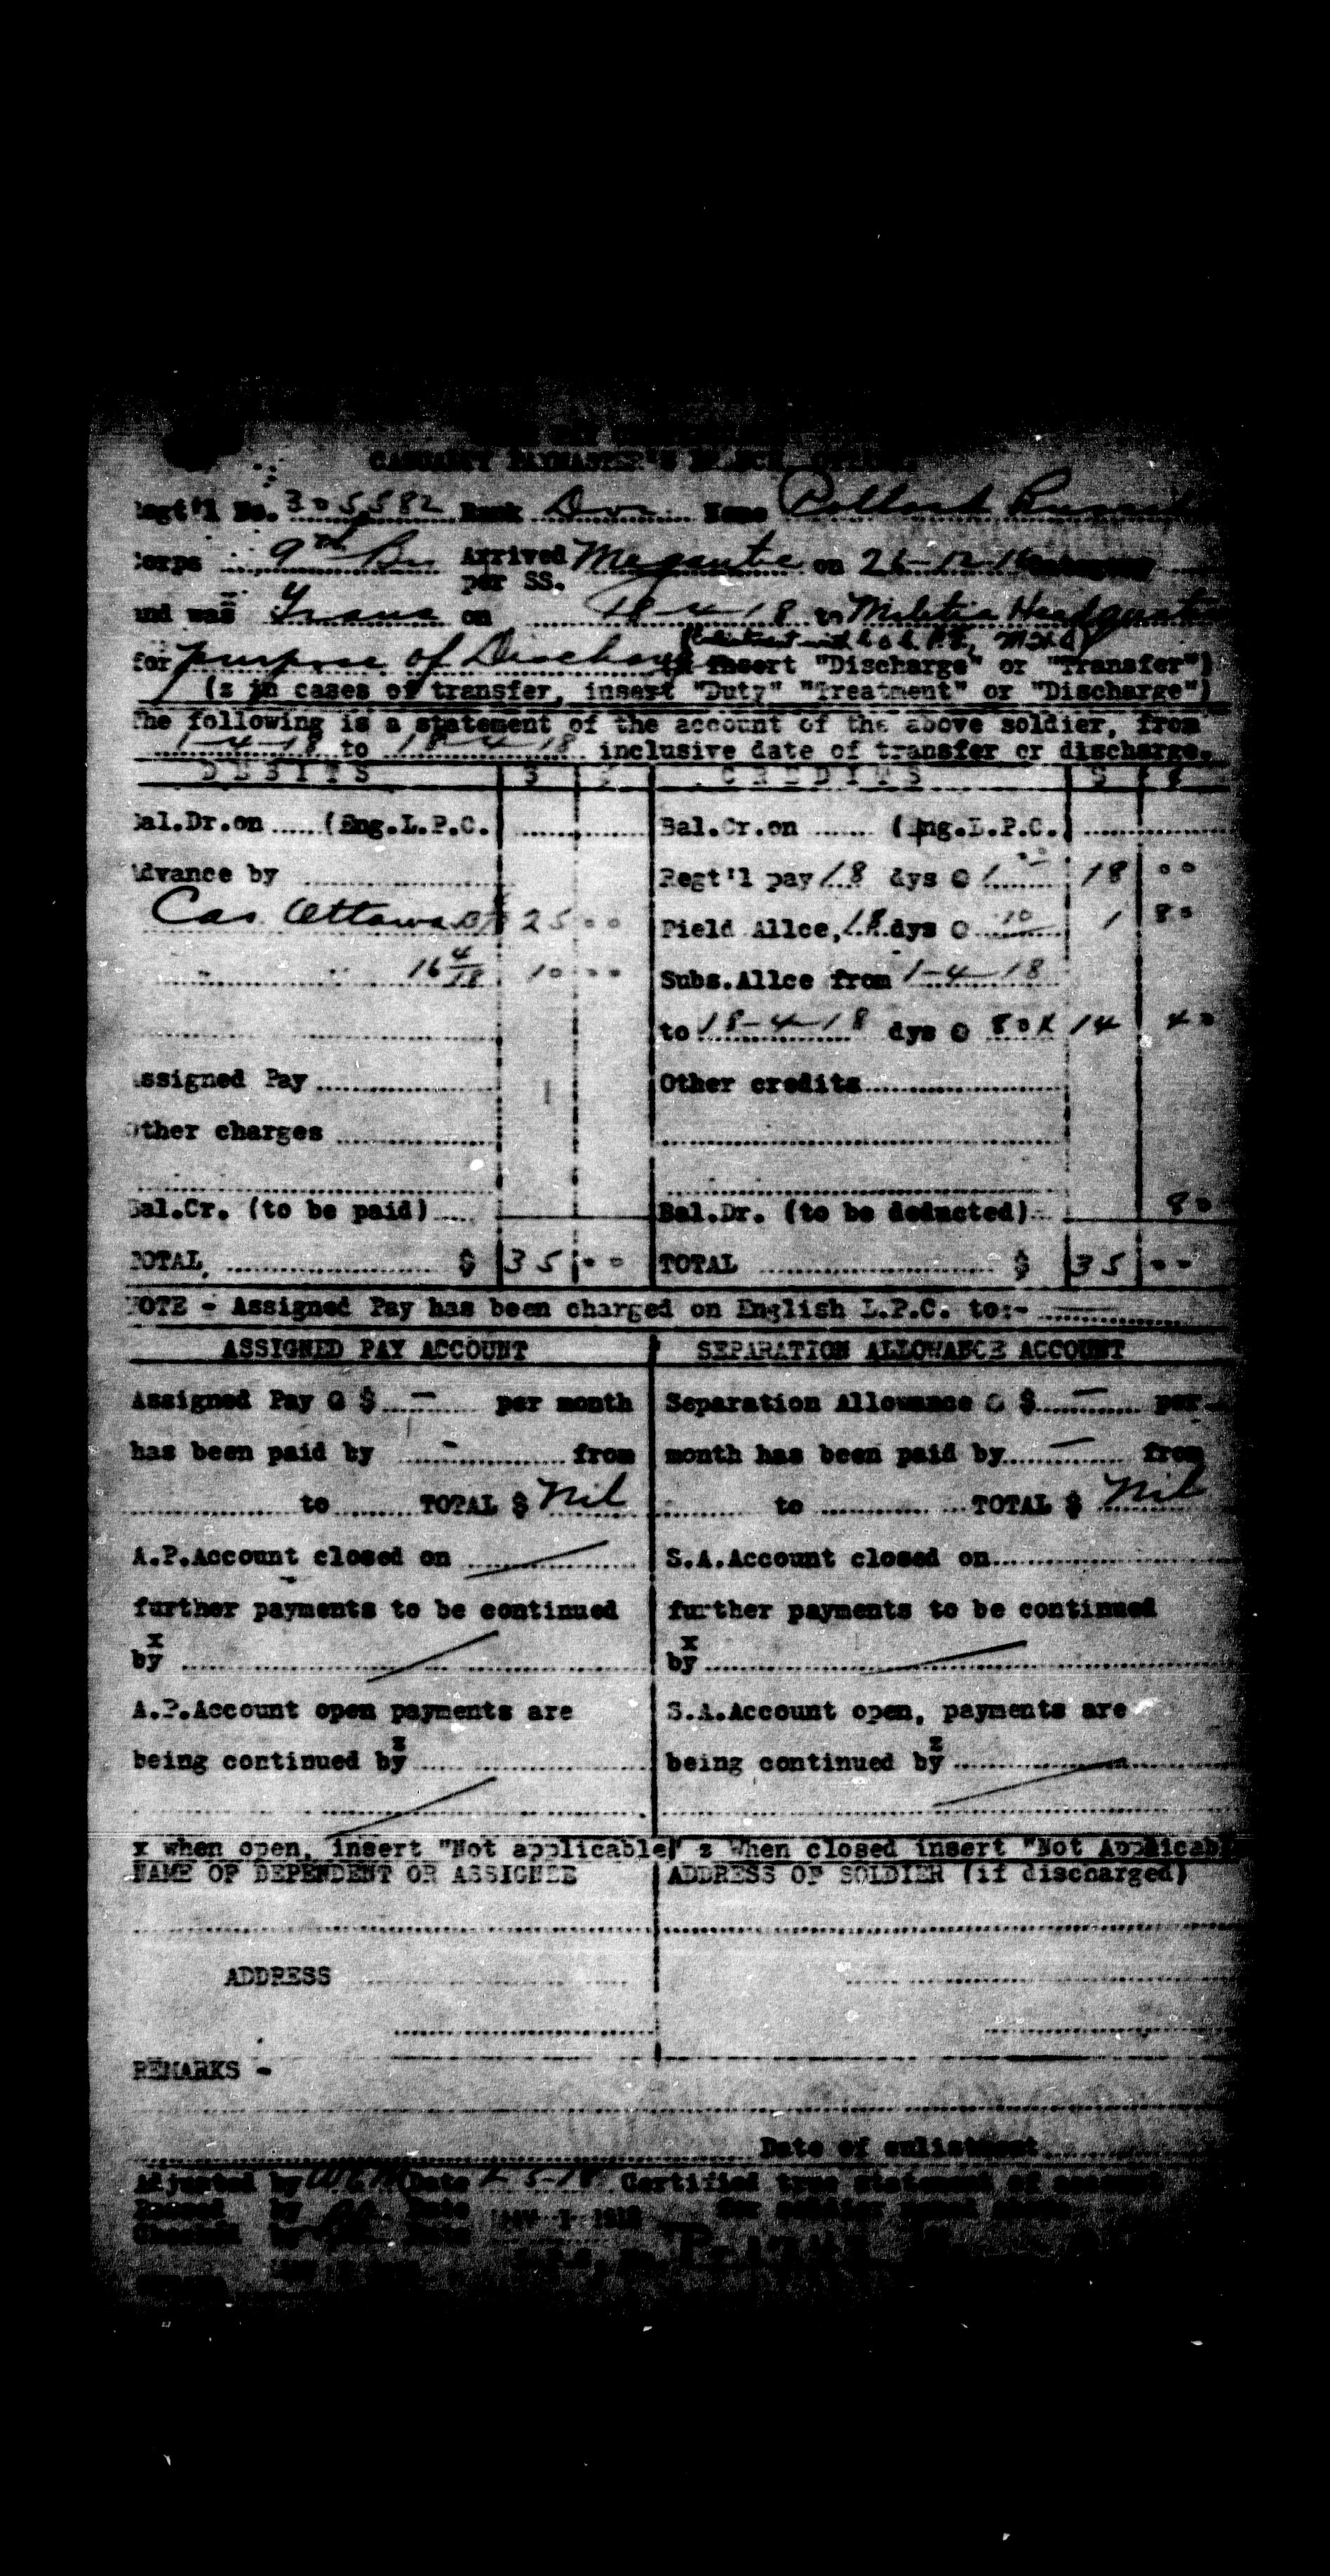 CASUALTY PAYMASTER'S
Regt'l No. 305582 Rank Dvr. Name Pollard
Corps 9th Arrived per SS. Megantic on 26-12-16
and was Trans on 18-4-18 to Militia Headquart
for purpose of Discharge insert "Discharge" or "Transfer")
(z in cases of transfer, insert "Duty" "Treatment" or "Discharge")
The following is a statement of the account of the above soldier, from
1-4-18 to 18-4-18 inclusive date of transfer or discharge.
DEBITS $ ¢ CREDITS $ ¢
Bal.Dr.on (Eng.L.P.C. Bal.Cr.on (Eng.L.P.C.)
Advance by Regt'l pay 18 dys @ 1 00 18 00
Cas. Ottawa 25 00 Field Allce, 18 dys @ 10 1 80
" " 16 4/18 10 00 Subs.Allce from 1-4-18
to 18-4-18 dys @ 80¢ 14 40
Assigned Pay Other credits
Other charges
Bal.Cr. (to be paid) Bal.Dr. (to be deducted) 80
TOTAL $ 35 00 TOTAL $ 35 00
NOTE - Assigned Pay has been charged on English L.P.C. to:-
ASSIGNED PAY ACCOUNT SEPARATION ALLOWANCE ACCOUNT
Assigned Pay @ $ — per month Separation Allowance @ $ — per
has been paid by - from month has been paid by — from
to TOTAL $ Nil to TOTAL $ Nil
A.P.Account closed on S.A.Account closed on
further payments to be continued further payments to be continued
x x
by by
A.P.Account open payments are S.A.Account open, payments are
z z
being continued by being continued by
x when open, insert "Not applicable" z When closed insert "Not Applicabl
NAME OF DEPENDENT OR ASSIGNEE ADDRESS OF SOLDIER (if discharged)
ADDRESS
REMARKS -
Date of enlistment
Adjusted by Date 1-5-18 Certified true statement of account
by Date MAY 1 1918
Checked by Date